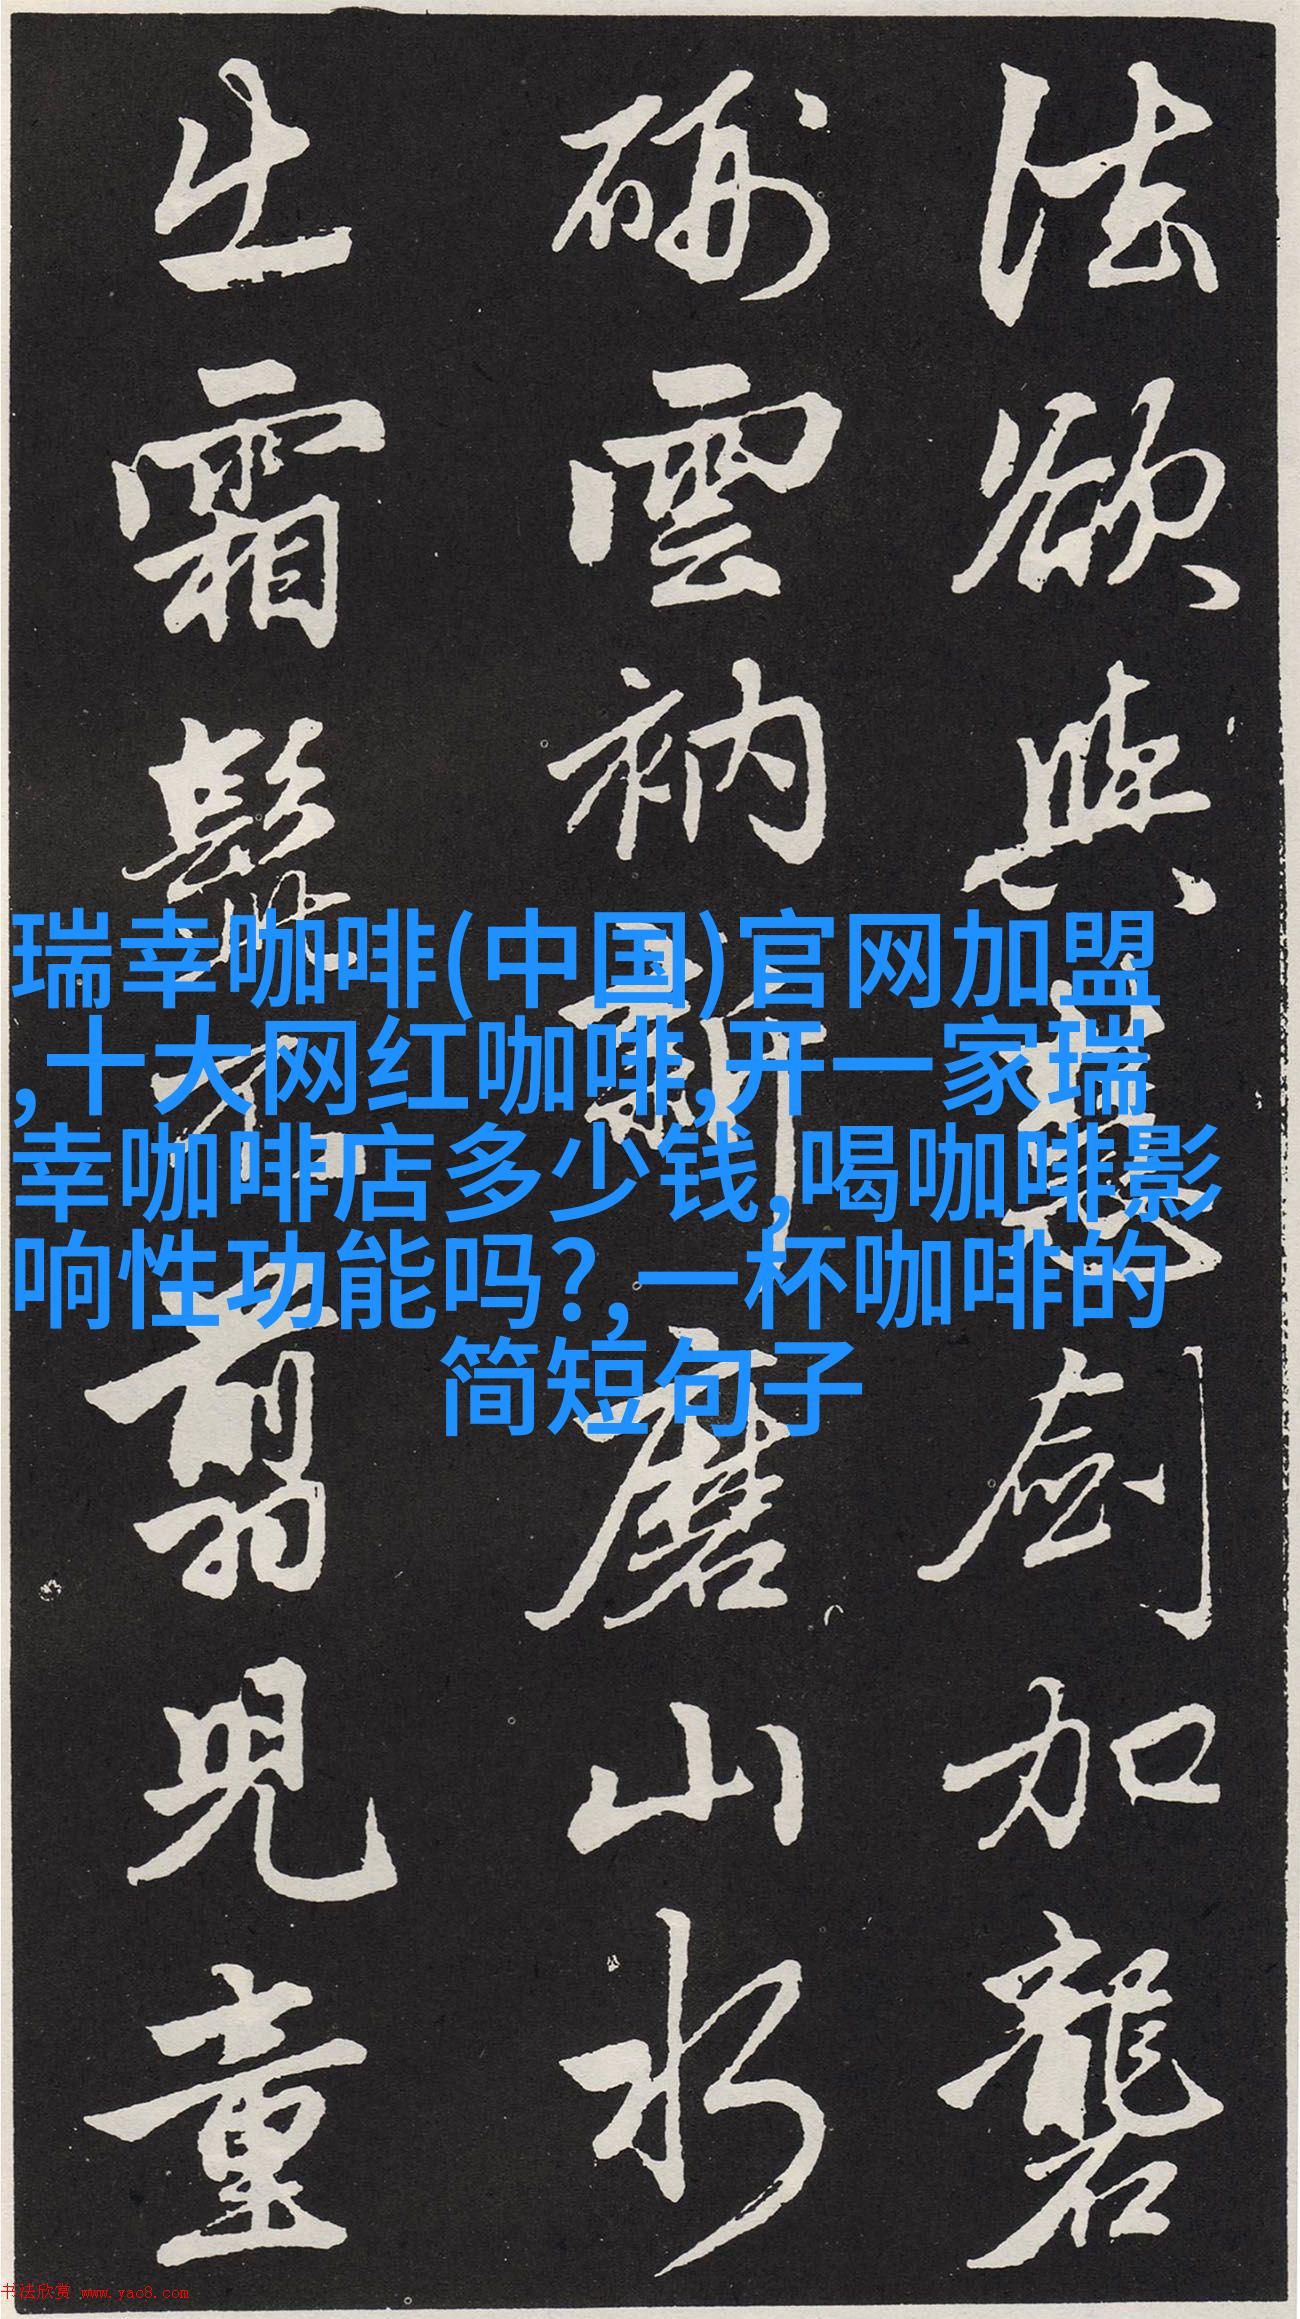 法欲與慧劍加礱
硎雲衲新磨山水
出霜髭不翦兒童
瑞幸咖啡(中国)官网加盟
,十大网红咖啡,开一家瑞
幸咖啡店多少钱,喝咖啡影
响性功能吗?,一杯咖啡的
简短句子
书法欣赏 www.yac8.com